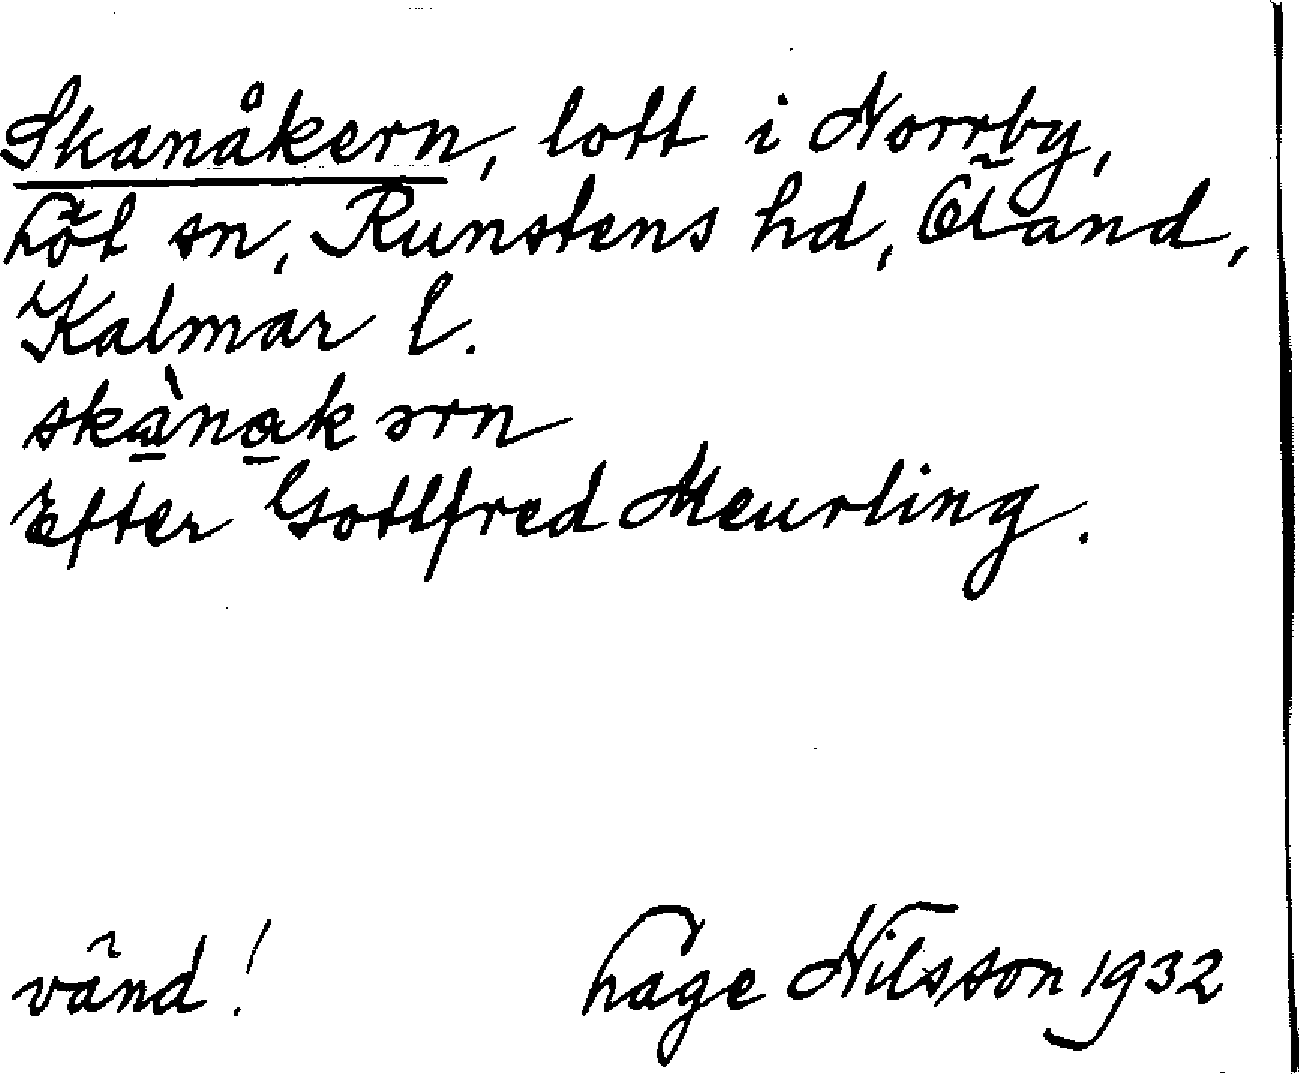 Skanåkern, lott i Norrby,
Löt sn, Runstens hd, Öland,
Kalmar l.
skànakərn
Efter Gottfred Meurling.
vänd! Lage Nilsson 1932